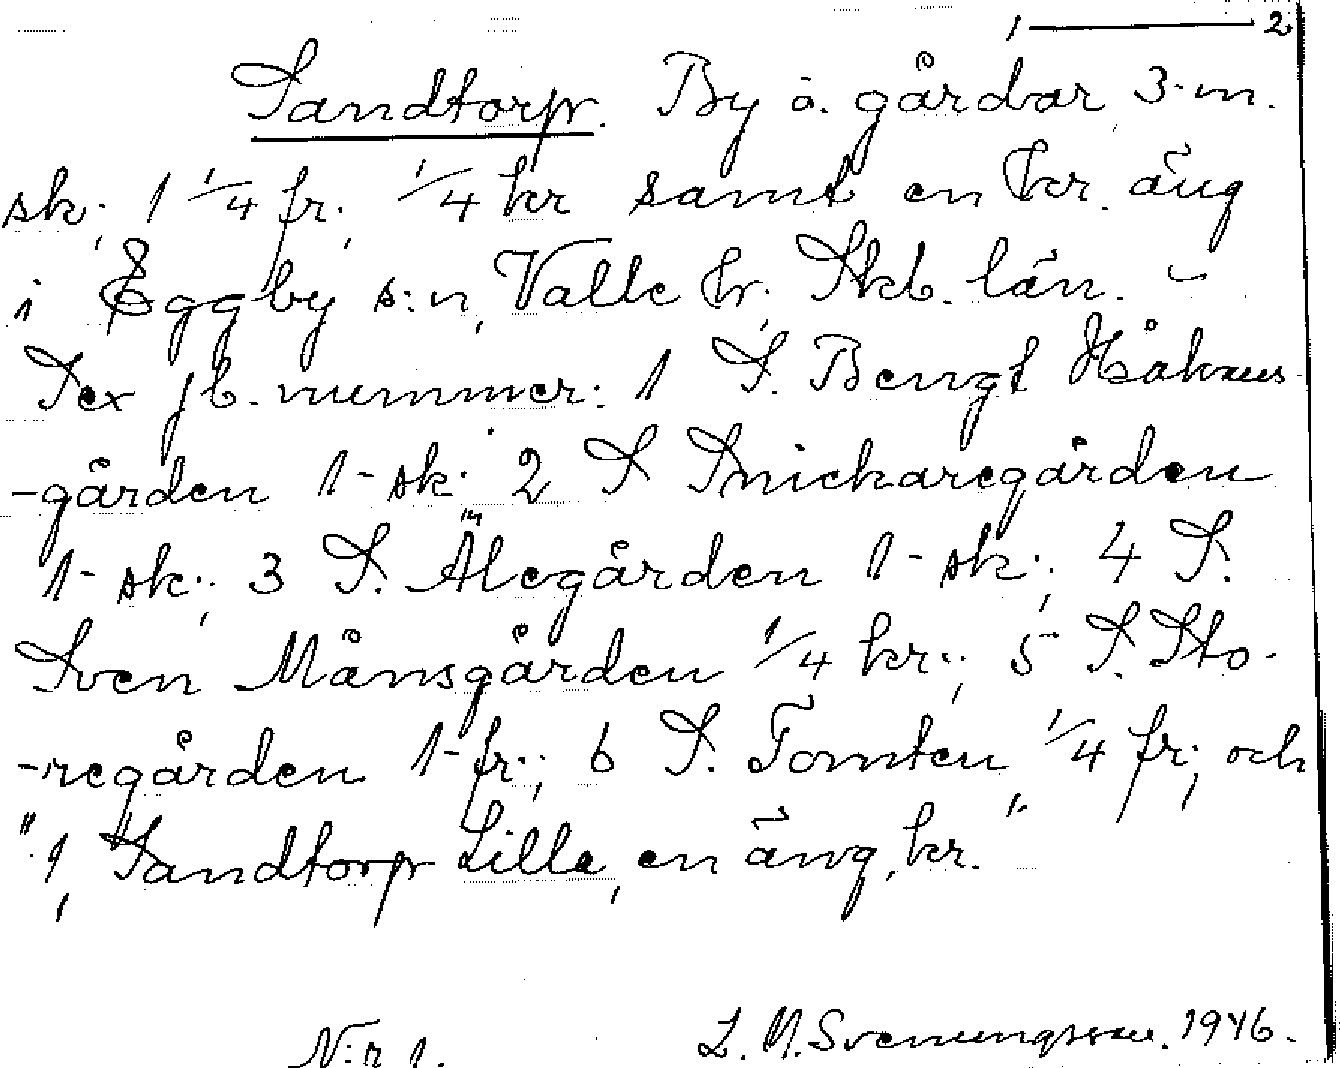 1 — 2
Sandtorp. By o. gårdar 3-m.
sk., 1 1/4 fr., 1/4 kr samt en kr. äng
i Eggby s:n, Valle hr., Skb. län. –
Sex jb. nummer: 1 S. Bengt Håkans
-gården 1- sk. 2 S Snickaregården
1- sk.; 3 S. Ålegården 1- sk.; 4 S.
Sven Månsgården 1/4 kr.; 5 S. Sto-
-regården 1- fr.; 6 S. Tomten 1/4 fr; och
"1, Sandtorp Lilla, en äng, kr.
N:r 1. L. M. Svenungsson. 1946.